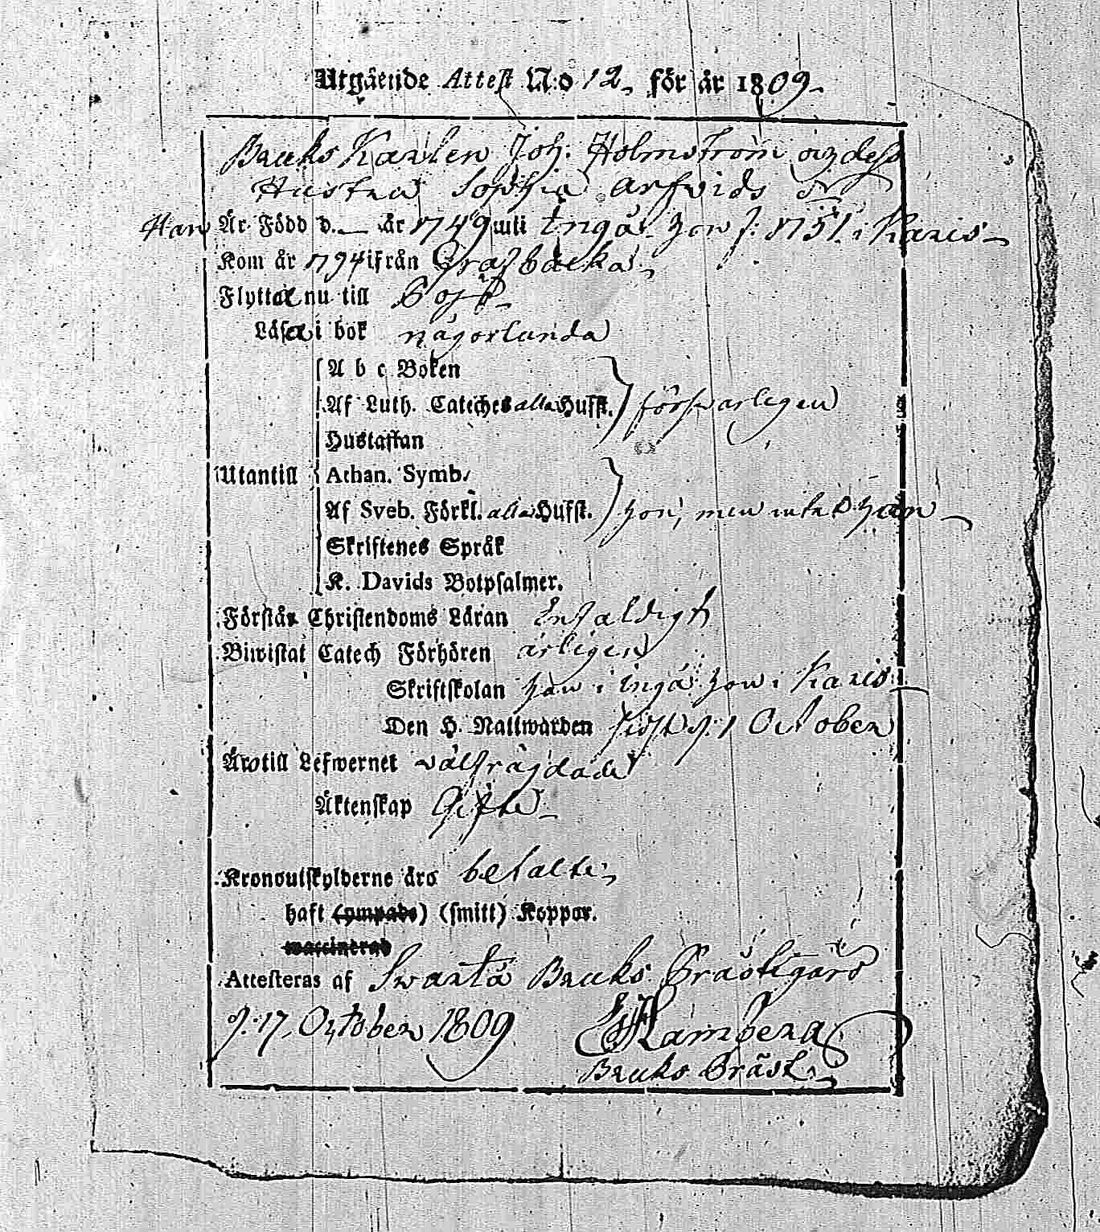 Utgående Attest N:o 12 för år 1809.
Bruks Karlen Joh. Holmström och dess
Hustru Sophia Arfvids dr
Han Är Född d. — år 1749 uti Ingå. hon f: 1751. i Karis
Kom år 1794 ifrån Grafbacka
Flyttar nu till
Läsa i bok någorlunda
A b c Boken
Af Luth. Cateches alla Hufst. försvarligen
Hustaflan
Utantill Athan. Symb.
Af Sveb. Förkl. alla Hufst. hon, men intet han
Skriftenes Språk
K. Davids Botpsalmer.
Förstår Christendoms Läran Enfaldigt
Biwistat Catech Förhören årligen
Skriftskolan han i Ingå hon i Karis
Den H. Nattwarden sidst d. 1 October
Äro till Lefwernet välfräjdade
Äktenskap Gifte
Kronoutskylderne äro betalte
haft (ympade) (smitt) Koppor.
waccinerad
Attesteras af Swartå Bruks Prästegård
d. 17. October 1809
Bruks Präst